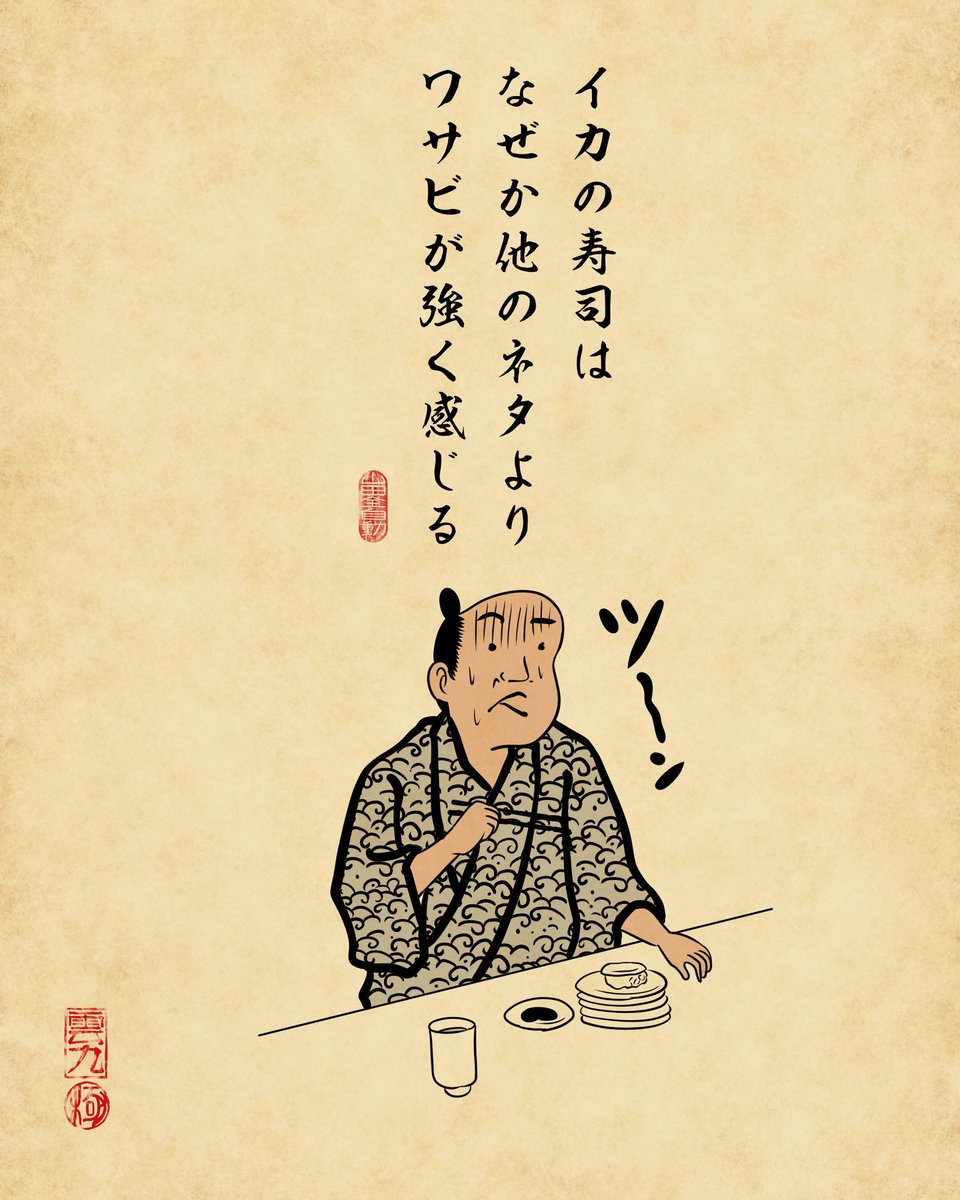 イカの寿司は
なぜか他のネタより
ワサビが強く感じる
ツーン